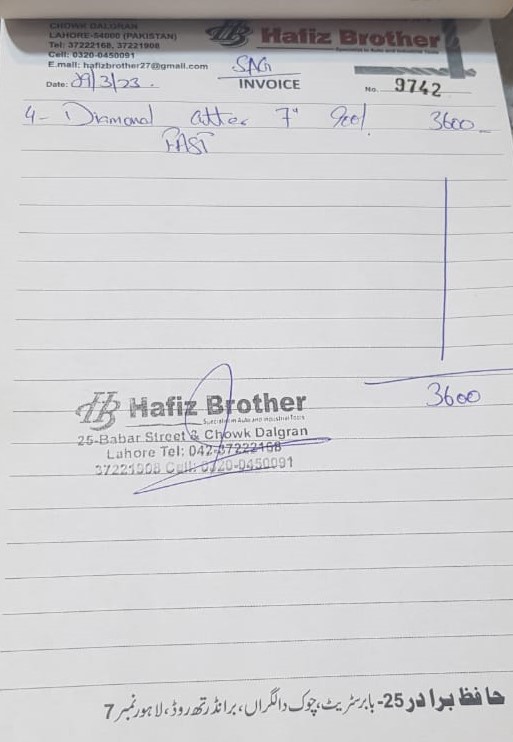 CHOWK DALGRAN
LAHORE-54000 (PAKISTAN)
Tel: 37222168, 37221908
Cell: 0320-0450091
E.mail: hafizbrother27@gmail.com
Hafiz Brother
Specialist in Auto and Industrial Tools
Date: 29/3/23.
SAG
INVOICE
No. 9742
4- Diamond atter 7" 900/ 3600
FAST
3600
Hafiz Brother
Specialist in Auto and Industrial Tools
25-Babar Street & Chowk Dalgran
Lahore Tel: 042-37222168
37221908 Cell: 0320-0450091
حافظ برادر 25-بابر سٹریٹ، چوک دالگراں، برانڈرتھ روڈ، لاہور نمبر 7